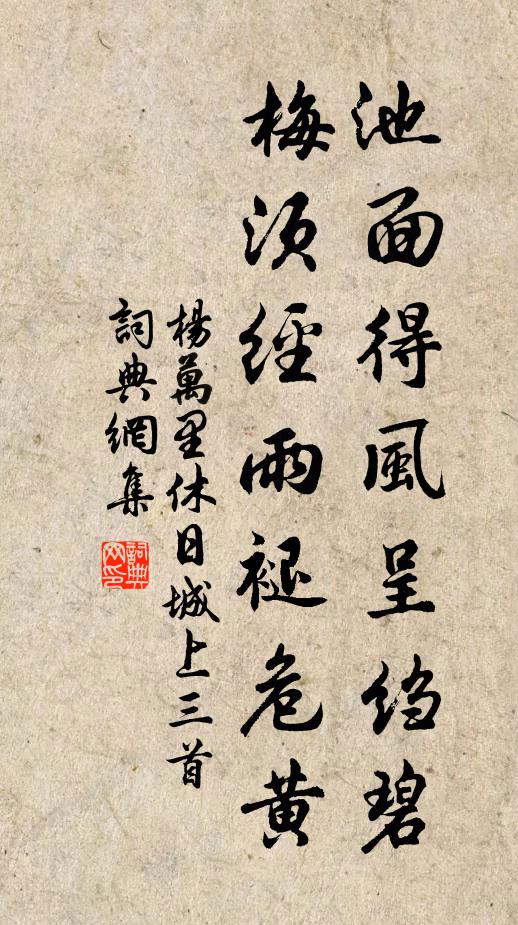 池面得風呈縐碧
梅須經雨褪危黃
楊萬里休日城上三首
詞典網集
詞典
网印